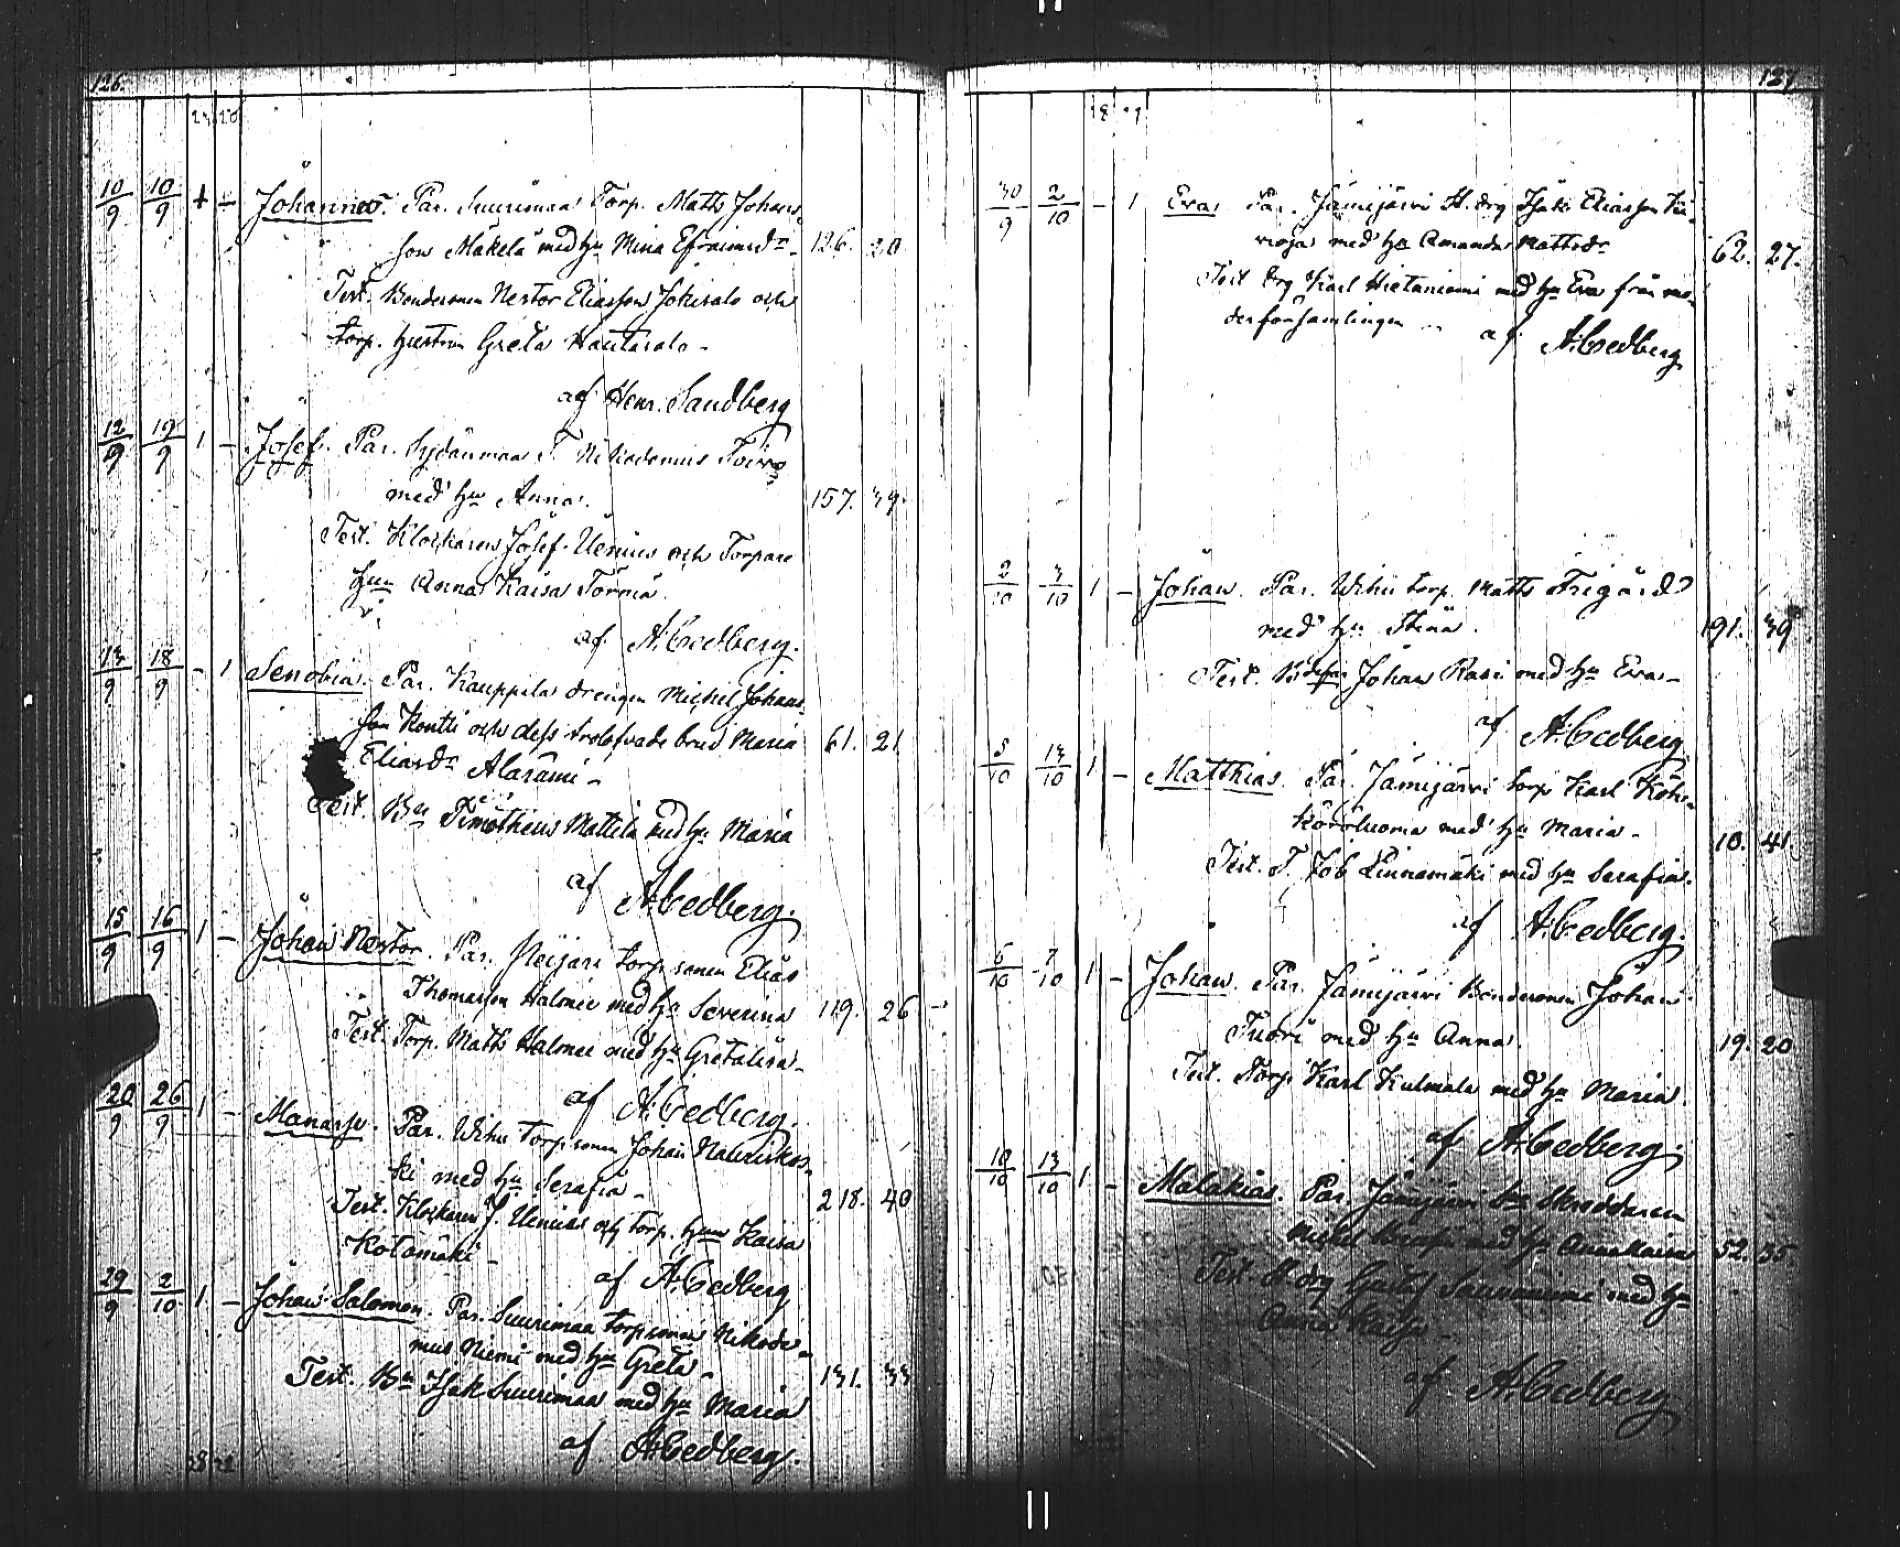 126.
23 20
10/9 10/9 1 – Johannes. Par. Suurimaa Torp. Matts Johans-
son Mäkelä med hu Mina Efraimsdr – 126. 20.
Test. Bondesonen Nestor Eliasson Jokisalo och
torp. hustrun Greta Hautasalo –
af Henr. Sandberg
12/9 19/9 1 – Josef. Par. Sydänmaa T. Nikodemus Toivo
med hu Anna. 157. 39.
Test. Klockaren Josef Uenius och Torpare
hun Anna Kaisa Törmä.
af A. Cedberg.
13/9 18/9 – 1 Senobia. Par. Kauppila drengen Michel Johans-
son Kontti och dess trolofvade brud Maria 61. 21
Eliasdr Alarämi –
Test. Bn Timotheus Mattila med hu Maria
af A. Cedberg.
15/9 16/9 1 – Johan Nestor. Par. Peijari torp.sonen Elias
Thomasson Halmee med hu Severina 119. 26
Test. Torp. Matts Halmee med hu Gretalisa –
af A. Cedberg.
20/9 26/9 1 – Manasse. Par. Wihu Torpsonen Johan Nauriskos-
ki med hu Serafia – 218. 40
Test. Klockaren J. Uenius och torp. hun Kaisa
Kotamäki –
af A. Cedberg
29/9 2/10 1 – Johan Salomon. Par. Suurimaa torpsonen Nikode-
mus Niemi med hu Greta – 131. 33
Test. Bn Isak Suurimaa med hu Maria
af A. Cedberg.
28 22
127
18 21
30/9 2/10 – 1 Eva. Par. Jämijärvi H. drg Isak Eliasson
med hu Amanda Mattsdr 62. 27.
Test. drg Karl Hietaniemi med hu Eva från mo-
derförsamlingen – af A. Cedberg
2/10 3/10 1 – Johan. Par. Wihu torp. Matts Frigård
med hu Stina. 191. 39
Test. Johan Rasi med hu Eva –
af A. Cedberg
5/10 13/10 1 – Matthias. Par. Jämijärvi torp Karl
med hu Maria – 10. 41.
Test. T. Job Linnamäki med hu Serafia.
af A. Cedberg.
6/10 7/10 1 – Johan. Par. Jämijärvi Bondesonen Johan
Tuori med hu Anna. 19. 20
Test. Torp Karl Kulmala med hu Maria.
af A. Cedberg.
10/10 13/10 1 – Malakias. Par. Jämijärvi Skreddaren
Michel med hu Anna Maria 52. 35.
Test. H. drg Gustaf med hu
Anna Kaisa –
af A. Cedberg.